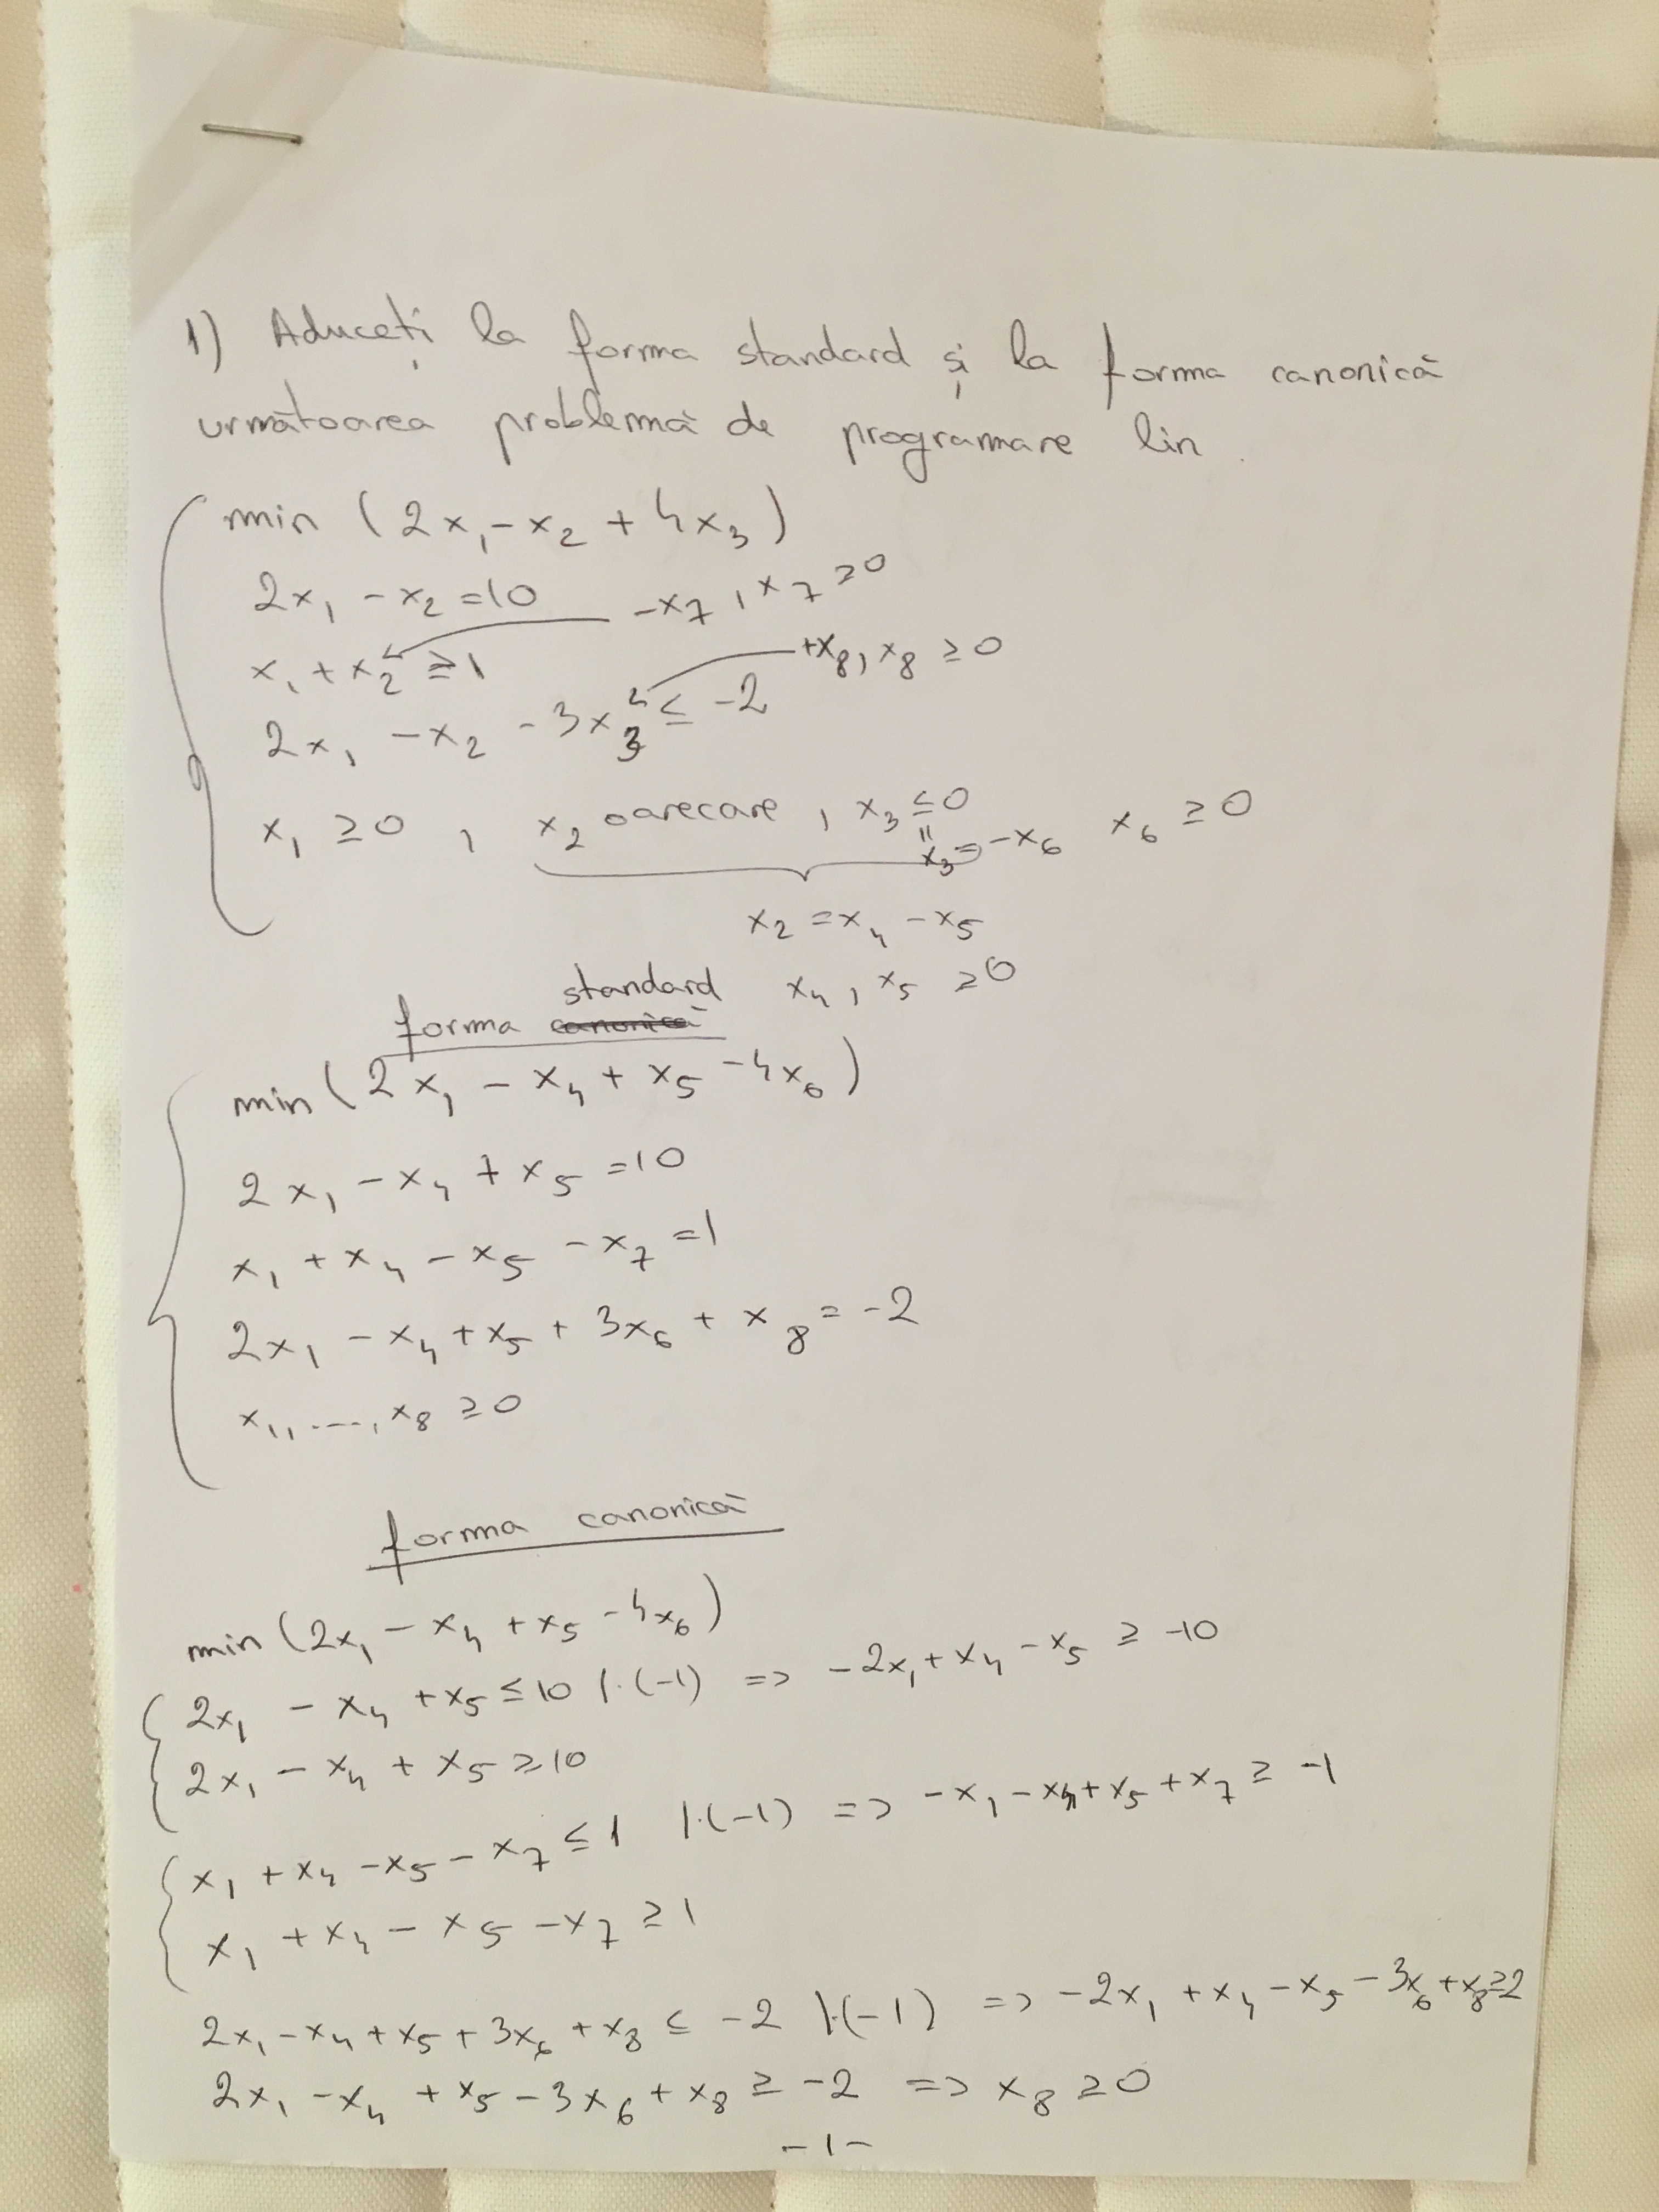 1) Aduceți la forma standard și la forma canonică
următoarea problemă de programare lin.
min (2x₁ - x₂ + 4x₃)
2x₁ - x₂ = 10 -x₇ , x₇ ≥ 0
x₁ + x₂ ≥ 1 +x₈, x₈ ≥ 0
2x₁ - x₂ - 3x₃ ≤ -2
x₁ ≥ 0 , x₂ oarecare , x₃ ≤ 0
x₃ = -x₆ x₆ ≥ 0
x₂ = x₄ - x₅
x₄ , x₅ ≥ 0
forma canonică standard
min (2x₁ - x₄ + x₅ - 4x₆)
2x₁ - x₄ + x₅ = 10
x₁ + x₄ - x₅ - x₇ = 1
2x₁ - x₄ + x₅ + 3x₆ + x₈ = -2
x₁, ..., x₈ ≥ 0
forma canonică
min (2x₁ - x₄ + x₅ - 4x₆)
2x₁ - x₄ + x₅ ≤ 10 |·(-1) => -2x₁ + x₄ - x₅ ≥ -10
2x₁ - x₄ + x₅ ≥ 10
x₁ + x₄ - x₅ - x₇ ≤ 1 |·(-1) => -x₁ - x₄ + x₅ + x₇ ≥ -1
x₁ + x₄ - x₅ - x₇ ≥ 1
2x₁ - x₄ + x₅ + 3x₆ + x₈ ≤ -2 |·(-1) => -2x₁ + x₄ - x₅ - 3x₆ + x₈ ≥ 2
2x₁ - x₄ + x₅ - 3x₆ + x₈ ≥ -2 => x₈ ≥ 0
-1-